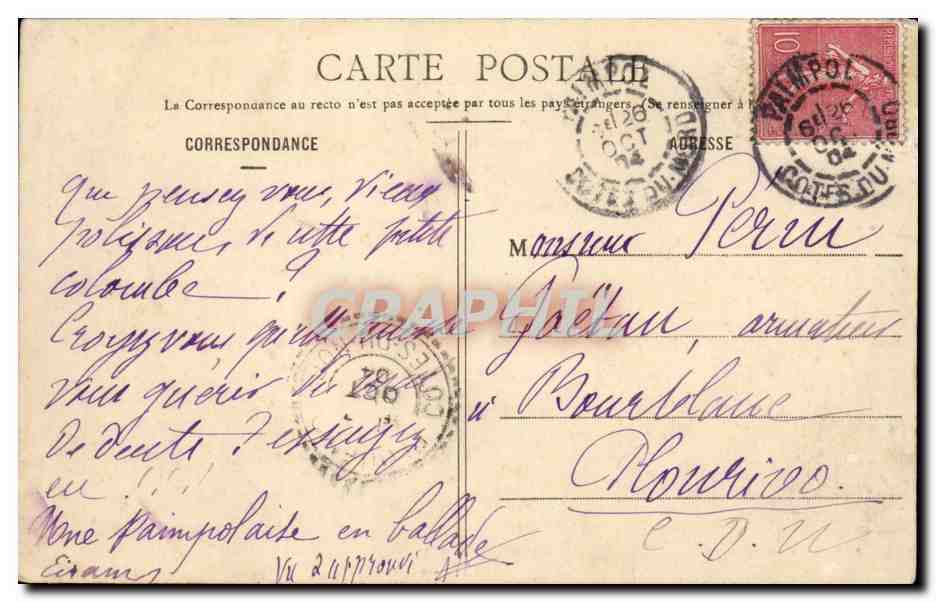 CARTE POSTALE
La Correspondance au recto n'est pas acceptée par tous les pays étrangers. (Se renseigner à
CORRESPONDANCE
ADRESSE
que pensez vous, vieux
polisson, de cette petite
colombe ?
Croyez vous qu'elle puisse
vous guérir du mal
De dents
en !!!
Une Paimpolaise en ballade
Vu & approuvé
Monsieur Perru
Gaëtan, armateur
à Bourblanc
Plourivo
C. D. N
PAIMPOL
26 OCT 04
COTES DU NORD
PAIMPOL
26 OC 04
COTES DU NORD
COTES DU
OCT
04
10
CRAPHIL